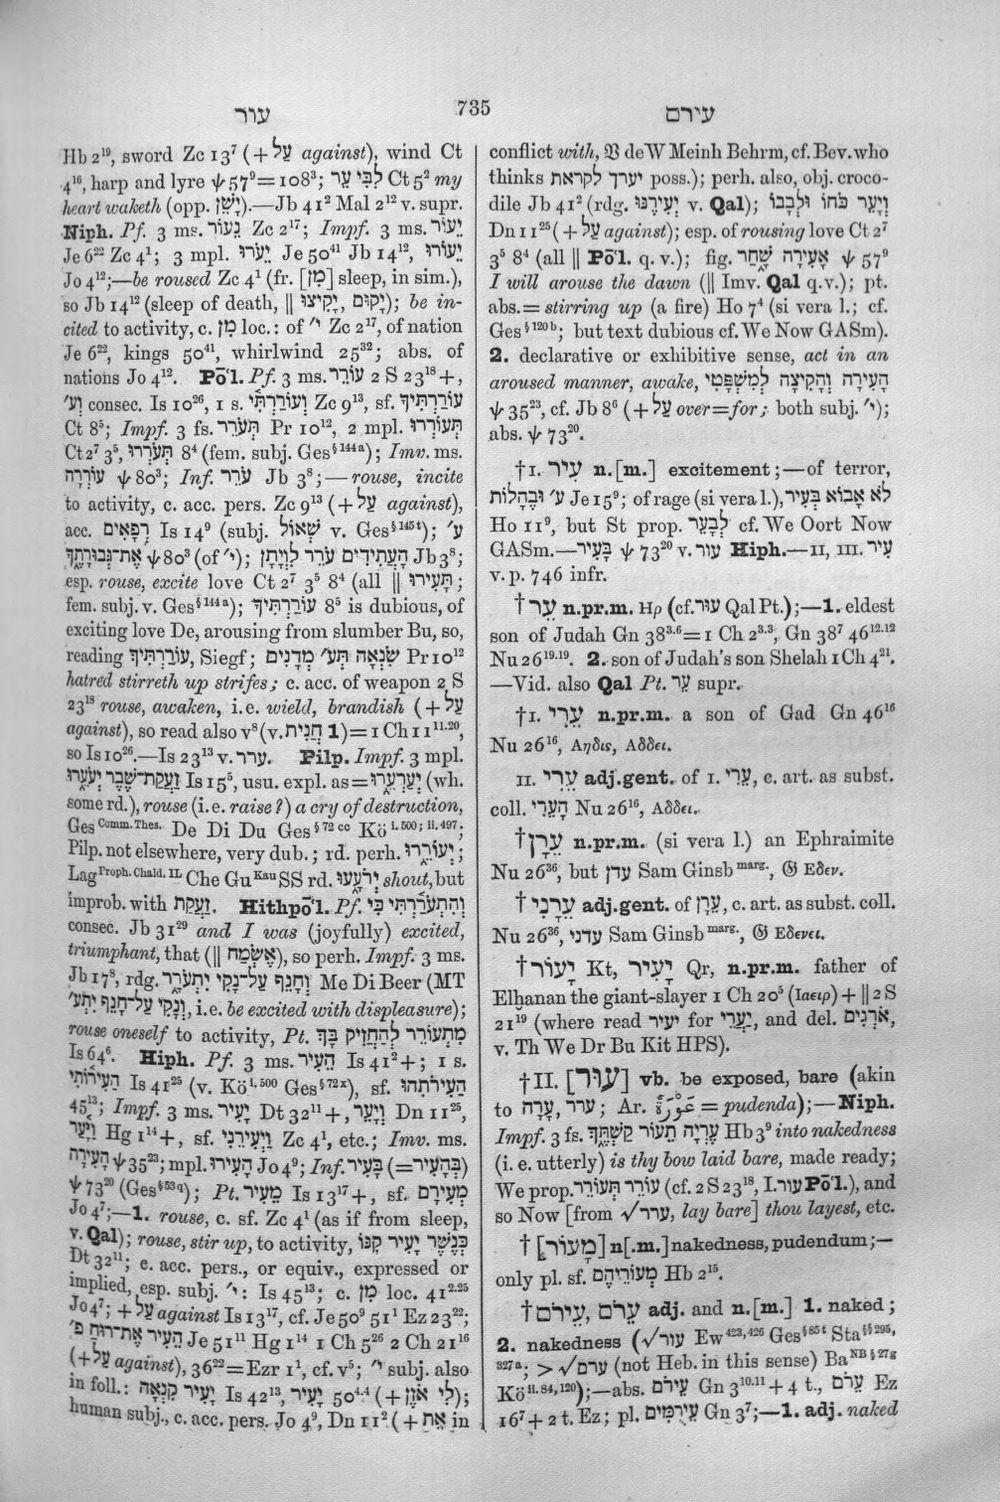 עור
735
עירם
Hb 2¹⁹, sword Zc 13⁷ (+עַל against), wind Ct
4¹⁶, harp and lyre ψ 57⁹=108³; לִבִּי עֵר Ct 5² my
heart waketh (opp. יָשֵׁן).—Jb 41² Mal 2¹² v. supr.
Niph. Pf. 3 ms. נֵעוֹר Zc 2¹⁷; Impf. 3 ms. יֵעוֹר
Je 6²² Zc 4¹; 3 mpl. יֵעֹרוּ Je 50⁴¹ Jb 14¹², יֵעוֹרוּ
Jo 4¹²;—be roused Zc 4¹ (fr. [מִן] sleep, in sim.),
so Jb 14¹² (sleep of death, ‖ יָקוּם, יָקִיצוּ); be in-
cited to activity, c. מִן loc.: of י׳ Zc 2¹⁷, of nation
Je 6²², kings 50⁴¹, whirlwind 25³²; abs. of
nations Jo 4¹². Pō‘l. Pf. 3 ms. עוֹרֵר 2 S 23¹⁸+,
וְע׳ consec. Is 10²⁶, 1 s. וְעוֹרַרְתִּי Zc 9¹³, sf. עוֹרַרְתִּיךָ
Ct 8⁵; Impf. 3 fs. תְּעֹרֵר Pr 10¹², 2 mpl. תְּעוֹרְרוּ
Ct 2⁷ 3⁵, תְּעֹרְרוּ 8⁴ (fem. subj. Ges§144a); Imv. ms.
עוֹרְרָה ψ 80³; Inf. עֹרֵר Jb 3⁸;—rouse, incite
to activity, c. acc. pers. Zc 9¹³ (+עַל against),
acc. רְפָאִים Is 14⁹ (subj. שְׁאוֹל v. Ges§145t); ע׳
אֶת־גְּבוּרָתֶךָ ψ 80³ (of י׳); הָעֲתִידִים עֹרֵר לִוְיָתָן Jb 3⁸;
esp. rouse, excite love Ct 2⁷ 3⁵ 8⁴ (all ‖ תָּעִירוּ;
fem. subj. v. Ges§144a); עוֹרַרְתִּיךָ 8⁵ is dubious, of
exciting love De, arousing from slumber Bu, so,
reading עוֹרַרְתִּיךְ, Siegf; שִׂנְאָה תְּע׳ מְדָנִים Pr 10¹²
hatred stirreth up strifes; c. acc. of weapon 2 S
23¹⁸ rouse, awaken, i.e. wield, brandish (+עַל
against), so read also v⁸ (v. חֲנִית 1)=1 Ch 11¹¹·²⁰,
so Is 10²⁶.—Is 23¹³ v. ערר. Pilp. Impf. 3 mpl.
זַעֲקַת־שֶׁבֶר יְעֹעֵרוּ Is 15⁵, usu. expl. as=יְעַרְעֵרוּ (wh.
some rd.), rouse (i.e. raise?) a cry of destruction,
Ges Comm. Thes. De Di Du Ges§72cc Kö i. 500; ii. 497;
Pilp. not elsewhere, very dub.; rd. perh. יְעוֹרֵרוּ;
Lag Proph. Chald. IL Che Gu Kau SS rd. יָרֹעֵעוּ shout, but
improb. with זַעֲקַת. Hithpō‘l. Pf. וְהִתְעֹרַרְתִּי כִּי
consec. Jb 31²⁹ and I was (joyfully) excited,
triumphant, that (‖ אֶשְׂמַח), so perh. Impf. 3 ms.
Jb 17⁸, rdg. וְחָנֵף עַל־נָקִי יִתְעֹרָר Me Di Beer (MT
וְנָקִי עַל־חָנֵף יִתְע׳, i.e. be excited with displeasure);
rouse oneself to activity, Pt. מִתְעוֹרֵר לְהַחֲזִיק בָּךְ
Is 64⁶. Hiph. Pf. 3 ms. הֵעִיר Is 41²+; 1 s.
הַעִירוֹתִי Is 41²⁵ (v. Kö i. 500 Ges§72x), sf. הַעִירֹתִהוּ
45¹³; Impf. 3 ms. יָעִיר Dt 32¹¹+, וְיָעֵר Dn 11²⁵,
וַיָּעַר Hg 1¹⁴+, sf. וַיְעִירֵנִי Zc 4¹, etc.; Imv. ms.
הָעִירָה ψ 35²³; mpl. הָעִירוּ Jo 4⁹; Inf. בָּעִיר (=בְּהָעִיר)
ψ 73²⁰ (Ges§53q); Pt. מֵעִיר Is 13¹⁷+, sf. מְעִירָם
Jo 4⁷;—1. rouse, c. sf. Zc 4¹ (as if from sleep,
v. Qal); rouse, stir up, to activity, כְּנֶשֶׁר יָעִיר קִנּוֹ
Dt 32¹¹; c. acc. pers., or equiv., expressed or
implied, esp. subj. י׳: Is 45¹³; c. מִן loc. 41²·²⁵
Jo 4⁷; +עַל against Is 13¹⁷, cf. Je 50⁹ 51¹ Ez 23²²;
הֵעִיר אֶת־רוּחַ פ׳ Je 51¹¹ Hg 1¹⁴ 1 Ch 5²⁶ 2 Ch 21¹⁶
(+עַל against), 36²²=Ezr 1¹, cf. v⁵; י׳ subj. also
in foll.: יָעִיר קִנְאָה Is 42¹³, יָעִיר 50⁴·⁴ (+לִי אֹזֶן);
human subj., c. acc. pers. Jo 4⁹, Dn 11² (+אֵת in
conflict with, 𝔙 deW Meinh Behrm, cf. Bev. who
thinks יערך לקראת poss.); perh. also, obj. croco-
dile Jb 41² (rdg. יְעִירֶנּוּ v. Qal); וְיָעֵר כֹּחוֹ וּלְבָבוֹ
Dn 11²⁵ (+עַל against); esp. of rousing love Ct 2⁷
3⁵ 8⁴ (all ‖ Pō‘l. q. v.); fig. אָעִירָה שָּׁחַר ψ 57⁹
I will arouse the dawn (‖ Imv. Qal q.v.); pt.
abs.=stirring up (a fire) Ho 7⁴ (si vera l.; cf.
Ges§120b; but text dubious cf. We Now GASm).
2. declarative or exhibitive sense, act in an
aroused manner, awake, הָעִירָה וְהָקִיצָה לְמִשְׁפָּטִי
ψ 35²³, cf. Jb 8⁶ (+עַל over=for; both subj. י׳);
abs. ψ 73²⁰.
†I. עִיר n.[m.] excitement;—of terror,
ע׳ וּבֶהָלוֹת Je 15⁸; of rage (si vera l.), לֹא אָבוֹא בְּעִיר
Ho 11⁹, but St prop. לְבָעֵר cf. We Oort Now
GASm.—בָּעִיר ψ 73²⁰ v. עור Hiph.—II, III. עִיר
v. p. 746 infr.
†עֵר n.pr.m. Ηρ (cf. עור Qal Pt.);—1. eldest
son of Judah Gn 38³·⁶=1 Ch 2³·³, Gn 38⁷ 46¹²·¹²
Nu 26¹⁹·¹⁹. 2. son of Judah's son Shelah 1 Ch 4²¹.
—Vid. also Qal Pt. עֵר supr.
†I. עֵרִי n.pr.m. a son of Gad Gn 46¹⁶
Nu 26¹⁶, Αηδις, Αδδει.
II. עֵרִי adj.gent. of I. עֵרִי, c. art. as subst.
coll. הָעֵרִי Nu 26¹⁶, Αδδει.
†עֵרָן n.pr.m. (si vera l.) an Ephraimite
Nu 26³⁶, but עדן Sam Ginsb marg., 𝔊 Εδεν.
†עֵרָנִי adj.gent. of עֵרָן, c. art. as subst. coll.
Nu 26³⁶, עדני Sam Ginsb marg., 𝔊 Εδενει.
†יָעוֹר Kt, יָעִיר Qr, n.pr.m. father of
Elḥanan the giant-slayer 1 Ch 20⁵ (Ιαειρ)+‖ 2 S
21¹⁹ (where read יעיר for יַעְרֵי, and del. אֹרְגִים,
v. Th We Dr Bu Kit HPS).
†II. [עוּר] vb. be exposed, bare (akin
to ערר, עָרָה; Ar. عَوْرَة = pudenda);—Niph.
Impf. 3 fs. עֶרְיָה תֵעוֹר קַשְׁתֶּךָ Hb 3⁹ into nakedness
(i. e. utterly) is thy bow laid bare, made ready;
We prop. עוֹרֵר תְּעוֹרֵר (cf. 2 S 23¹⁸, I. עור Pō‘l.), and
so Now [from √ערר, lay bare] thou layest, etc.
†[מָעוֹר] n[.m.] nakedness, pudendum;—
only pl. sf. מְעוֹרֵיהֶם Hb 2¹⁵.
†עֵירֹם, עֵרֹם adj. and n.[m.] 1. naked;
2. nakedness (√עור Ew 423, 426 Ges§85t Sta§§295,
327a; >√ערם (not Heb. in this sense) Ba NB§27g
Kö ii. 84, 120);—abs. עֵירֹם Gn 3¹⁰·¹¹+4 t., עֵרֹם Ez
16⁷+2 t. Ez; pl. עֵירֻמִּים Gn 3⁷;—1. adj. naked